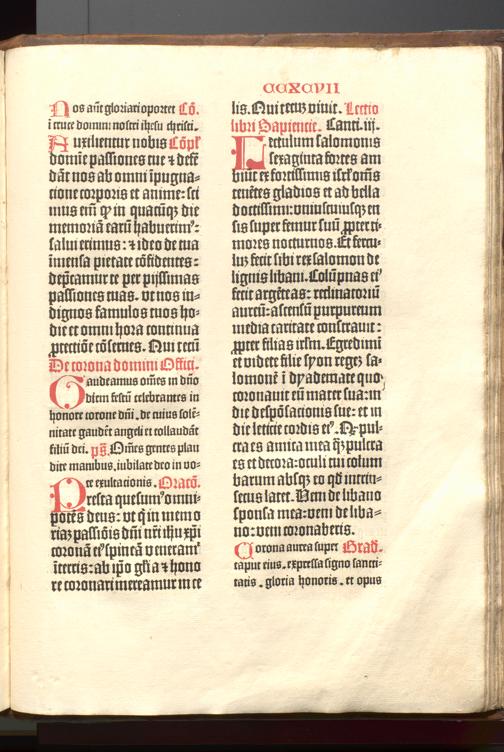 CCXCVII
Nos aūt gloriari oportet Cō.
i cruce domini nostri ihesu christi.
Auxilientur nobis Cōpl'
domīe passiones tue ⁊ defē
dāt nos ab omni īpugna-
tione corporis et anime: sci
mus em̄ ꝙ in quacūqꝫ die
memoriā earū habuerimꝰ:
salui erimus: ⁊ ideo de tua
īmensa pietate cōfidentes:
dep̄camur te per pijssimas
passiones tuas. vt nos in-
dignos famulos tuos ho-
die et omni hora continua
ꝓtectiōe cōserues. Qui tecū
De corona domini Offici.
Gaudeamus om̄es in dn̄o
diem festū celebrantes in
honore corone dn̄i. de cuius solē-
nitate gaudēt angeli et collaudāt
filiū dei. ps̄. Om̄es gentes plau
dite manibus. iubilate deo in vo-
ce exultacionis. Oracō.
Presta quesumꝰ omni-
potēs deus: vt q̄ in memo
riaꝫ passiōis dn̄i nr̄i ihū xp̄i
coronā eiꝰ spineā veneramꝰ
ī terris: ab ip̄o gl'ia ⁊ hono
re coronari mereamur in ce
lis. Qui tecuꝫ viuit. Lectio
libri Sapiencie. Canti. iij.
Fectulum salomonis
sexaginta fortes am
biūt ex fortissimis isrl' om̄s
tenētes gladios et ad bella
doctissimi: vniuscuiusqꝫ en
sis super femur suū ꝓpter ti-
mores nocturnos. Et fercu-
luꝫ fecit sibi rex salomon de
lignis libani. Colūpnas eiꝰ
fecit argēteas: reclinatoriū
aureū: ascensū purpureum
media caritate constrauit:
ꝓpter filias irlm. Egredimī
et videte filie syon regeꝫ sa-
lomonē ī dyademate quo
coronauit eū mater sua: in
die despōsacionis sue: et in
die leticie cordis eiꝰ. Qꝫ pul-
cra es amica mea q̄ꝫ pulcra
es et decora: oculi tui colum
barum absqꝫ eo qd̄ intrin-
secus latet. Veni de libano
sponsa mea: veni de liba-
no: veni coronaberis.
Corona aurea super Grad̄.
caput eius. expressa signo sancti-
tatis. gloria honoris. et opus